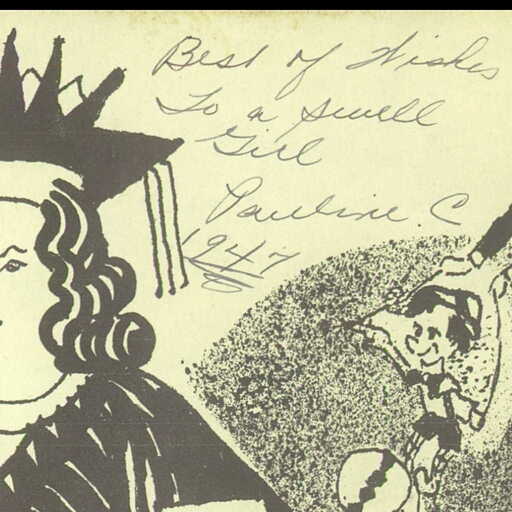 Best of Wishes
To a swell
Girl
Pauline C
1947